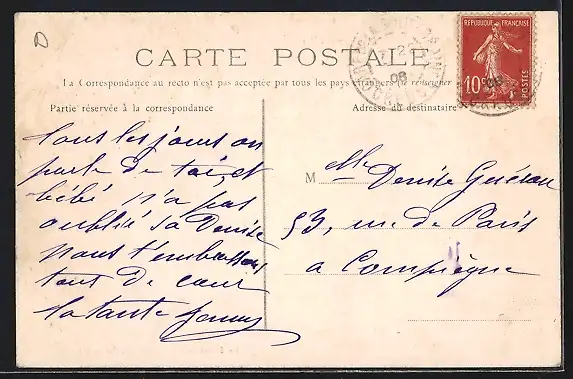 D
CARTE POSTALE
La Correspondance au recto n'est pas acceptée par tous les pays étrangers (Se renseigner
Partie réservée à la correspondance
Adresse du destinataire
Tous les jours on
parle de toi, et
bébé n'a pas
oublié sa Denise
nous t'embrassons
tout de cœur
ta tante Jenny
M
Mlle Denise Guéran
53, rue de Paris
a Compiègne
REPUBLIQUE FRANÇAISE
10c
POSTES
08